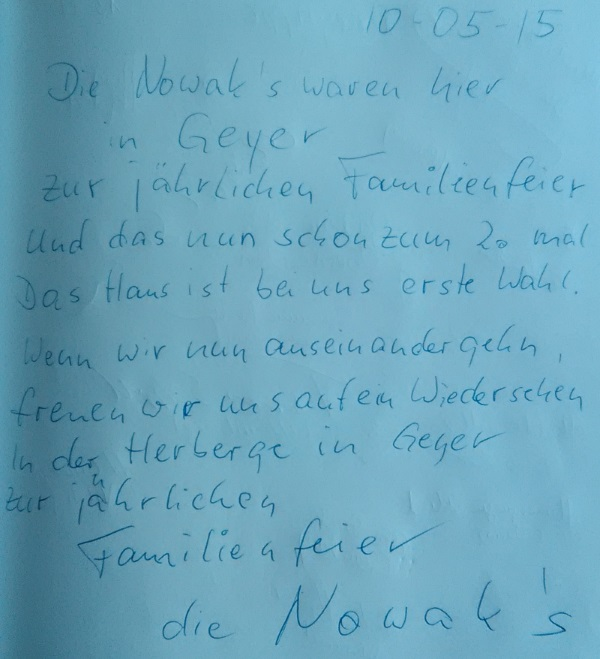 10-05-15
Die Nowak's waren hier
in Geyer
zur jährlichen Familienfeier
und das nun schon zum 20 mal
Das Haus ist bei uns erste Wahl.
Wenn wir nun auseinandergehn,
freuen wir uns auf ein Wiedersehen
In der Herberge in Geyer
zur jährlichen
Familienfeier
die Nowak's